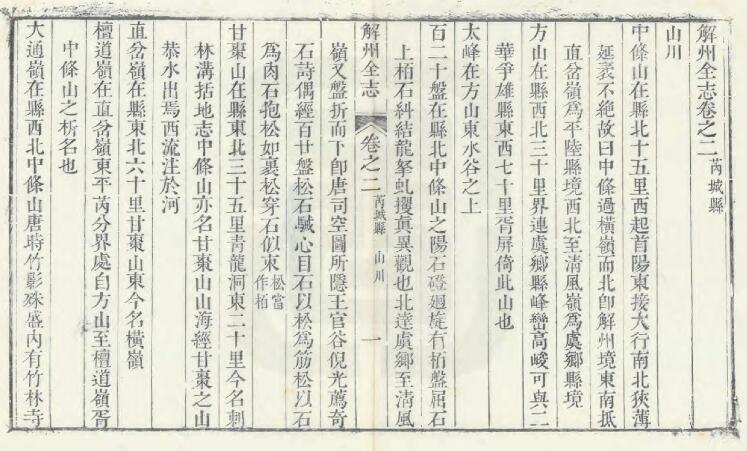 解州全志卷之二 芮城縣
山川
中條山在縣北十五里西起首陽東接大行南北狹薄
延袤不絶故曰中條過橫嶺而北卽解州境東南抵
直岔嶺爲平陸縣境西北至清風嶺爲虞鄉縣境
方山在縣西北三十里界連虞鄉縣峰巒高峻可與二
華爭雄縣東西七十里胥屏倚此山也
太峰在方山東水谷之上
百二十盤在縣北中條山之陽石磴廻旋有栢盤屈石
上栢石糾結龍拏虬攫眞異觀也北達虞鄉至清風
解州全志 卷之二 芮城縣 山川 一
嶺又盤折而下卽唐司空圖所隱王官谷倪光薦奇
石詩偶經百廿盤松石駴心目石以松爲筋松以石
爲肉石抱松如裹松穿石似束 松當作栢
甘棗山在縣東北三十五里青龍洞東二十里今名刺
林溝括地志中條山亦名甘棗山山海經甘棗之山
恭水出焉西流注於河
直岔嶺在縣東北六十里甘棗山東今名橫嶺
檀道嶺在直岔嶺東平芮分界處自方山至檀道嶺胥
中條山之析名也
大通嶺在縣西北中條山唐時竹影殊盛內有竹林寺